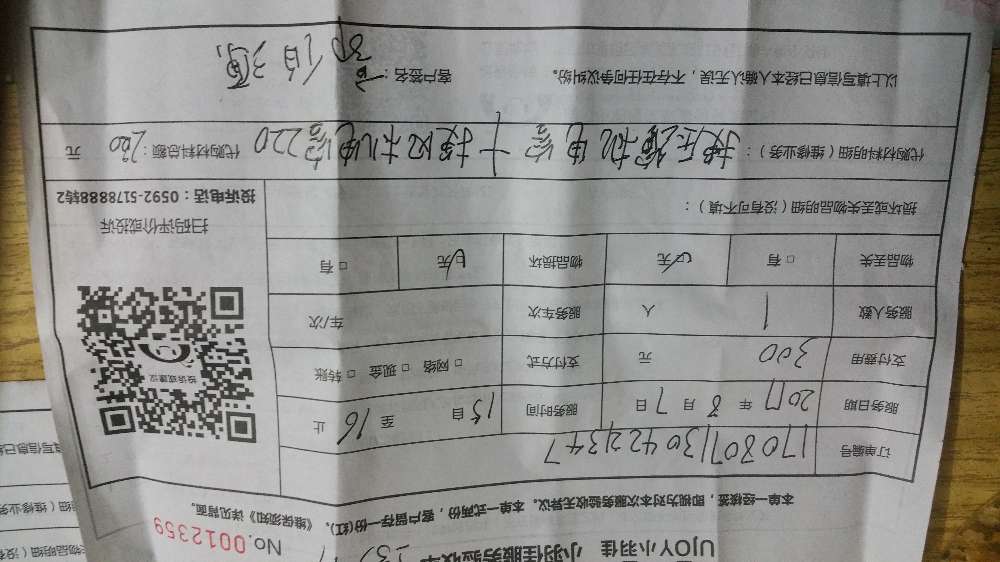 UJOY小羽佳 小羽佳服务验收单
No.0012359
本单一经核签，即视为对本次服务验收无异议。本单一式两份，客户留存一份(红)。《维保须知》详见背面。
订单编号 1708071304221347
服务日期 2017 年 8 月 7 日 服务时间 15 自 至 16 止
支付费用 300 元 支付方式 □ 网络 □ 现金 □ 转账
服务人数 1 人 服务车次 车/次
物品丢失 □ 有 无 物品损坏 无 □ 有
损坏或丢失物品明细（没有可不填）：
投诉或建议
扫码评价或投诉
投诉电话：0592-5178888转2
代购材料明细（维修业务）： 换压缩机电容 + 换风机电容220 代购材料总额：220 元
以上填写信息已经本人确认无误，不存在任何争议纠纷。 客户签名：